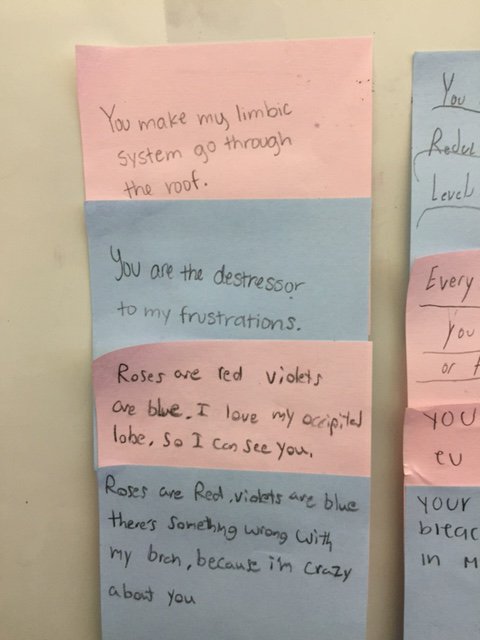 You make my limbic
system go through
the roof.
You are the destressor
to my frustrations.
Roses are red violets
are blue. I love my occipital
lobe, so I can see you.
Roses are Red, violets are blue
there's something wrong with
my bran, because i'm crazy
about you
You
Level
Every
you
or
YOU
eu
your
in M